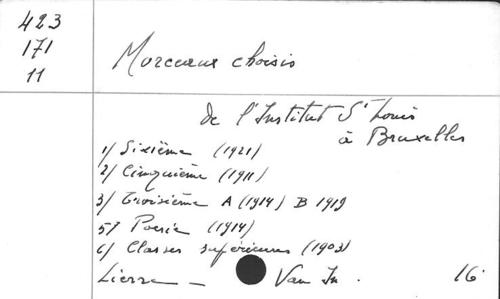 423
171
11
Morceaux choisis
de l'Institut St Louis
à Bruxelles
1/ Sixième (1921)
2/ Cinquième (1911)
3/ Troisième A (1914) B 1919
5/ Poésie (1914)
6/ Classes supérieures (1903)
Lierre - Van In. 16°